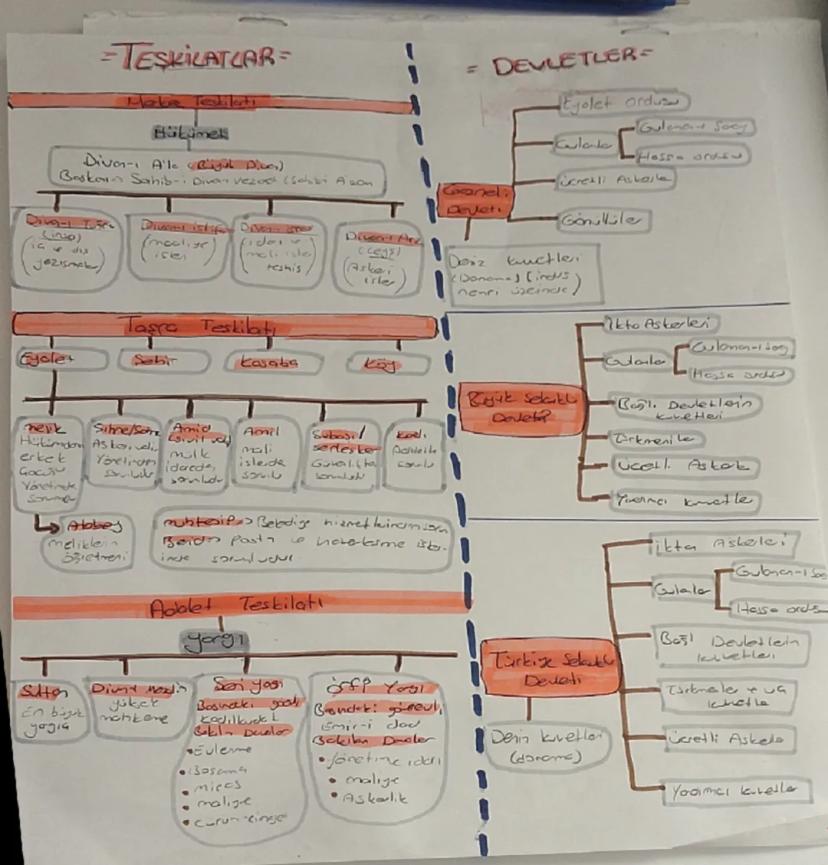 =TEŞKİLATLAR=
Merkez Teşkilatı
Hükümet
Divan-ı Ala (Büyük Divan)
Divan-ı Tuğra
(inşa)
iç ve dış
yazışmalar
Divan-ı istifa
(maliye
işleri
Divan-ı
(idari ve
mali işler
teşhis)
Divan-ı Arz
(ceyş)
(Askeri
işler)
Taşra Teşkilatı
Eyalet
Şehir
Kasaba
Köy
Melik
Hükümdar
erkek
Çocuğu
Yönetimde
sorumlu
Şıhne/Şahne
Askeri vali
Yönetimden
sorumludur
Amid
(sivil vali)
mülk
idareden
sorumludur
Amil
mali
işlerde
sorumlu
Subaşı/
serleşker
Güvenlikte
sorumludur
Kadı
Adalette
sorumlu
Atabey
meliklerin
öğretmeni
muhtesip → Belediye hizmetlerinden
Berid → Posta ve haberleşme işle-
rinde sorumludur.
Adalet Teşkilatı
yargı
Sultan
En büyük
yargıç
Divan-ı Mezalim
yüksek
mahkeme
Şeri yargı
Başındaki
Kadılkudat
Bakılan Davalar
• Evlenme
• Boşanma
• miras
• maliye
ÖRFİ Yargı
Başındaki görevli
Emir-i dad
Bakılan Davalar
• Yönetim, idari
• maliye
• Askerlik
= DEVLETLER=
Gazneli
Devleti
Eyalet ordusu
Gulamlar
Gulaman-ı Saray
Hassa ordusu
ücretli Askerler
Gönüllüler
Deniz kuvvetleri
(Donanma) (indus
nehri üzerinde)
Büyük Selçuklu
Devleti
İkta Askerleri
Gulamlar
Gulaman-ı Saray
Hassa ordusu
Bağlı Devletlerin
kuvvetleri
Türkmenler
Ücretli Askerler
Yardımcı kuvvetler
Türkiye Selçuklu
Devleti
ikta Askerleri
Gulamlar
Gulaman-ı Saray
Hassa ordusu
Bağlı Devletlerin
kuvvetleri
Türkmenler ve uç
kuvvetler
Ücretli Askerler
Yardımcı kuvvetler
Deniz kuvvetleri
(donanma)